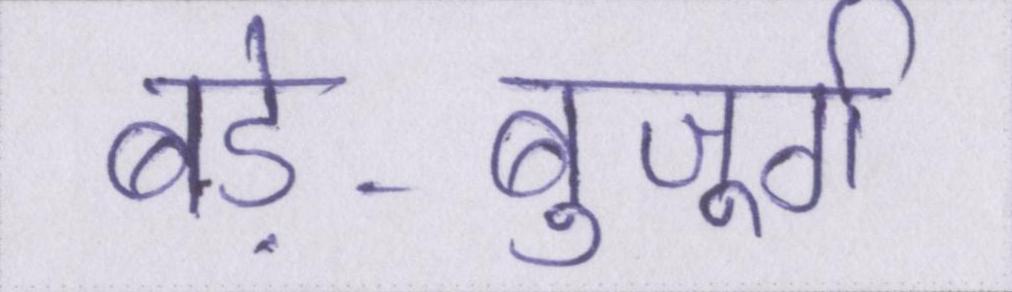 बड़े-बुजूर्ग